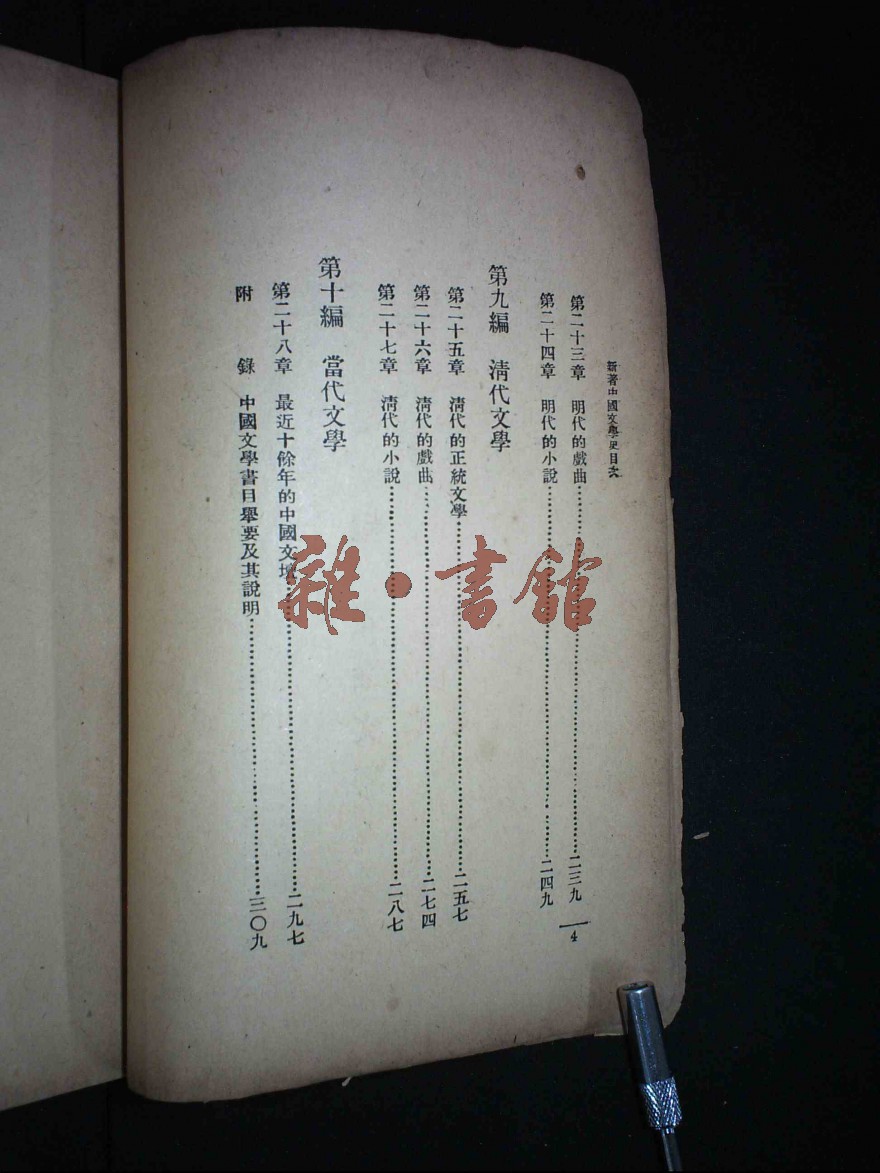 新著中國文學史目次
第二十三章 明代的戲曲……二三九
第二十四章 明代的小說……二四九
第九編 清代文學
第二十五章 清代的正統文學……二五七
第二十六章 清代的戲曲……二七四
第二十七章 清代的小說……二八七
第十編 當代文學
第二十八章 最近十餘年的中國文壇……二九七
附錄 中國文學書目舉要及其說明……三〇九
4
雜·書館